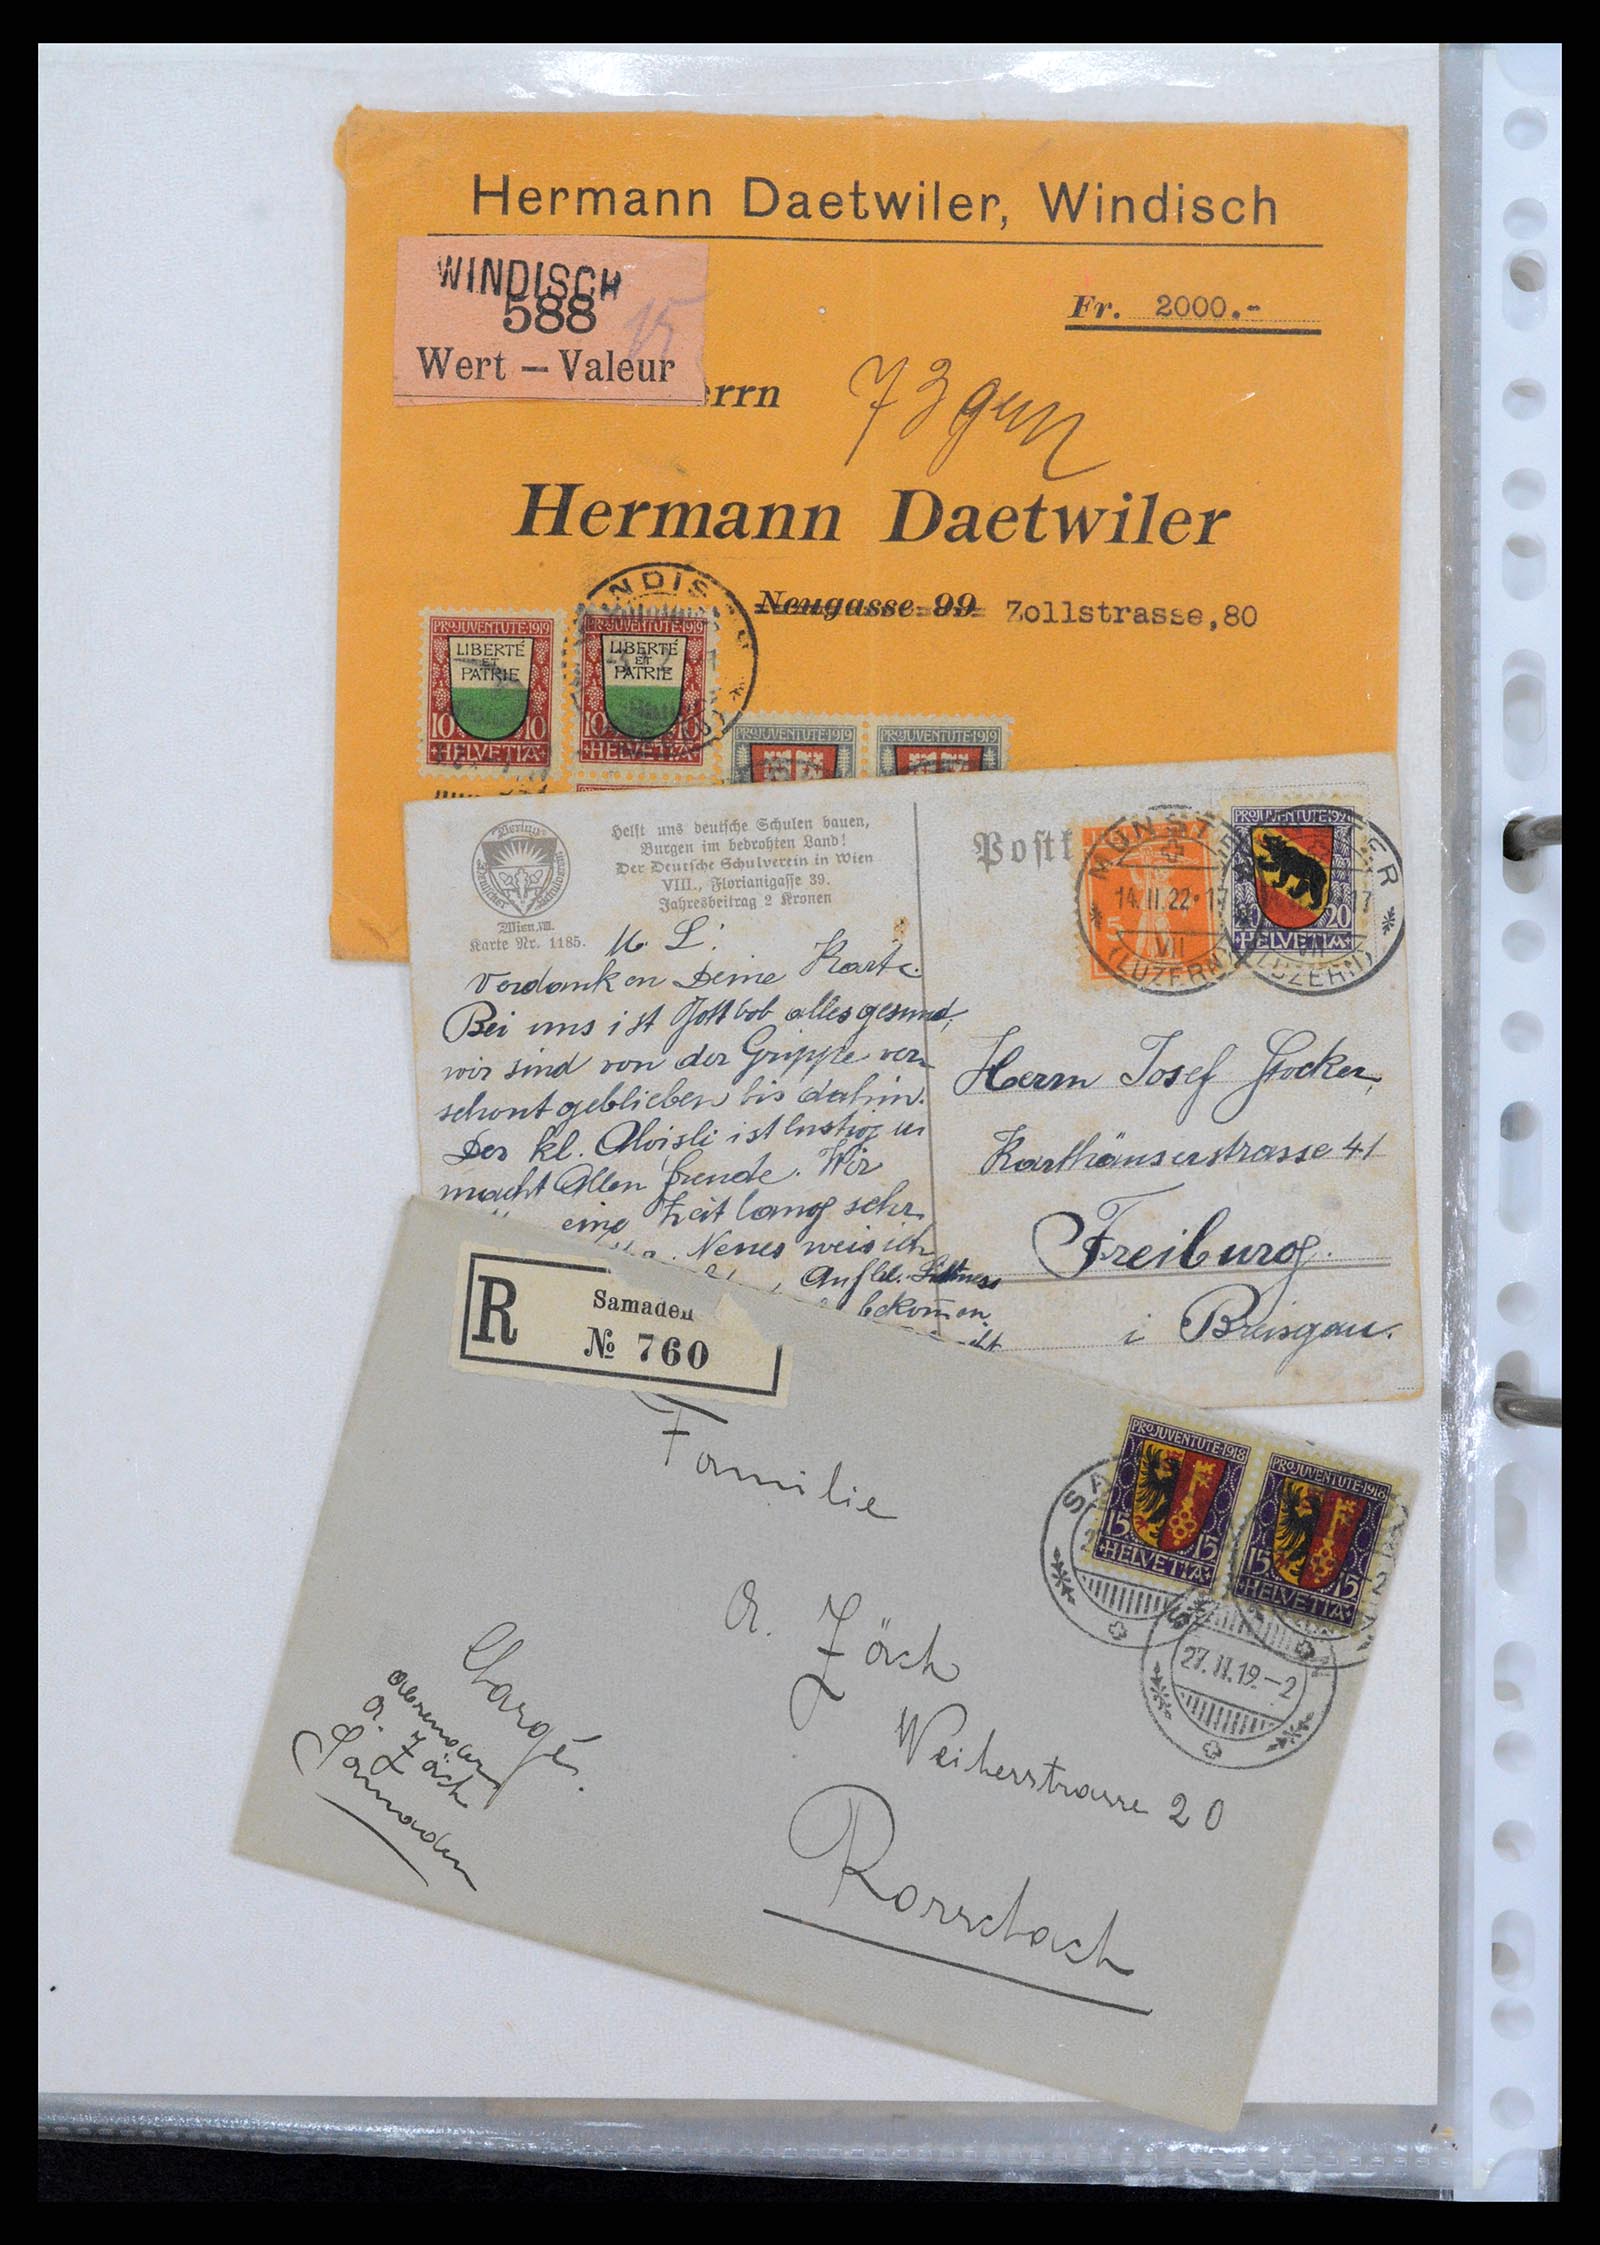 Hermann Daetwiler, Windisch
WINDISCH
588
15
Wert – Valeur
Fr. 2000.-
errn
73 gm
Hermann Daetwiler
Neugasse 99 Zollstrasse,80
NDIS
PROJUVENTUTE·1919
LIBERTÉ
ET
PATRIE
10 10
HELVETIA
PROJUVENTUTE·1919
LIBERTÉ
ET
PATRIE
10 10
HELVETIA
PROJUVENTUTE·1919
PROJUVENTUTE·1919
Helft uns deutsche Schulen bauen,
Burgen im bedrohten Land!
Der Deutsche Schulverein in Wien
VIII., Florianigasse 39.
Jahresbeitrag 2 Kronen
Wien, VIII.
Karte Nr. 1185.
Postk
MÜNST
14.II.22·17
VII
(LUZERN)
5
PROJUVENTUTE·1921
20 20
HELVETIA
TER
17
VII
(LUZERN)
M. L!
Verdanken Deine Karte.
Bei uns ist Gott lob alles gesund,
wir sind von der Grippe ver
schont geblieben bis dahin.
Der kl. Aloisli ist lustig u
macht Allen freude. Wir
eine Zeit lang sehr
Neues weis ich
bekommen
Herrn Josef Stocker,
Karthäuserstrasse 41
Freiburg.
i Breisgau.
R
Samaden
№ 760
PROJUVENTUTE·1918
15 15
HELVETIA
PROJUVENTUTE·1918
15 15
HELVETIA
SA
27.II.19.–2
Familie
A. Zäch
Weiherstrasse 20
Rorschach
Chargé.
Absender
A. Zäch
Samaden